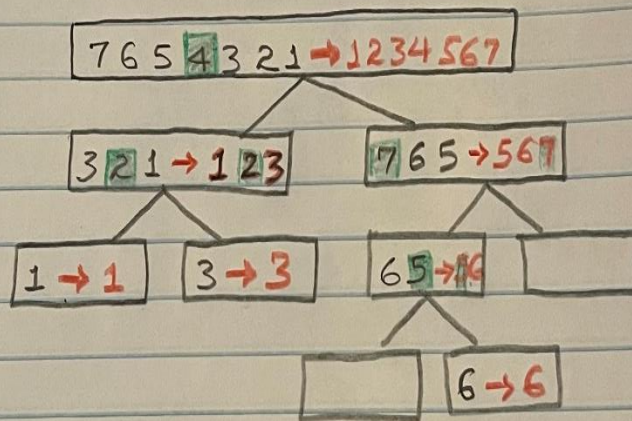 7 6 5 4 3 2 1 → 1 2 3 4 5 6 7
3 2 1 → 1 2 3
7 6 5 → 5 6 7
1 → 1
3 → 3
6 5 → 6
6 → 6